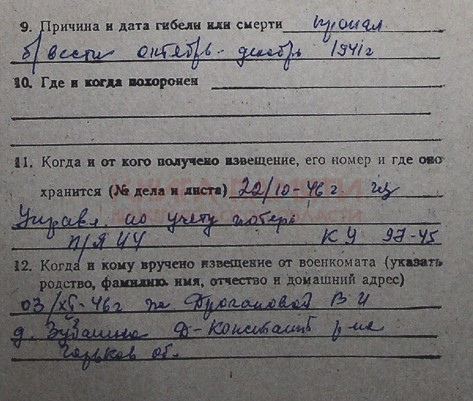 9. Причина и дата гибели или смерти пропал
б/вести октябрь-декабрь 1941г
10. Где и когда похоронен
11. Когда и от кого получено извещение, его номер и где оно
хранится (№ дела и листа) 22/10-46г из
Управл по учету потерь
КУ 97-45
12. Когда и кому вручено извещение от военкомата (указать
родство, фамилию, имя, отчество и домашний адрес)
03/XI-46г В И
д. Д-Константин р-на
Горьков об.